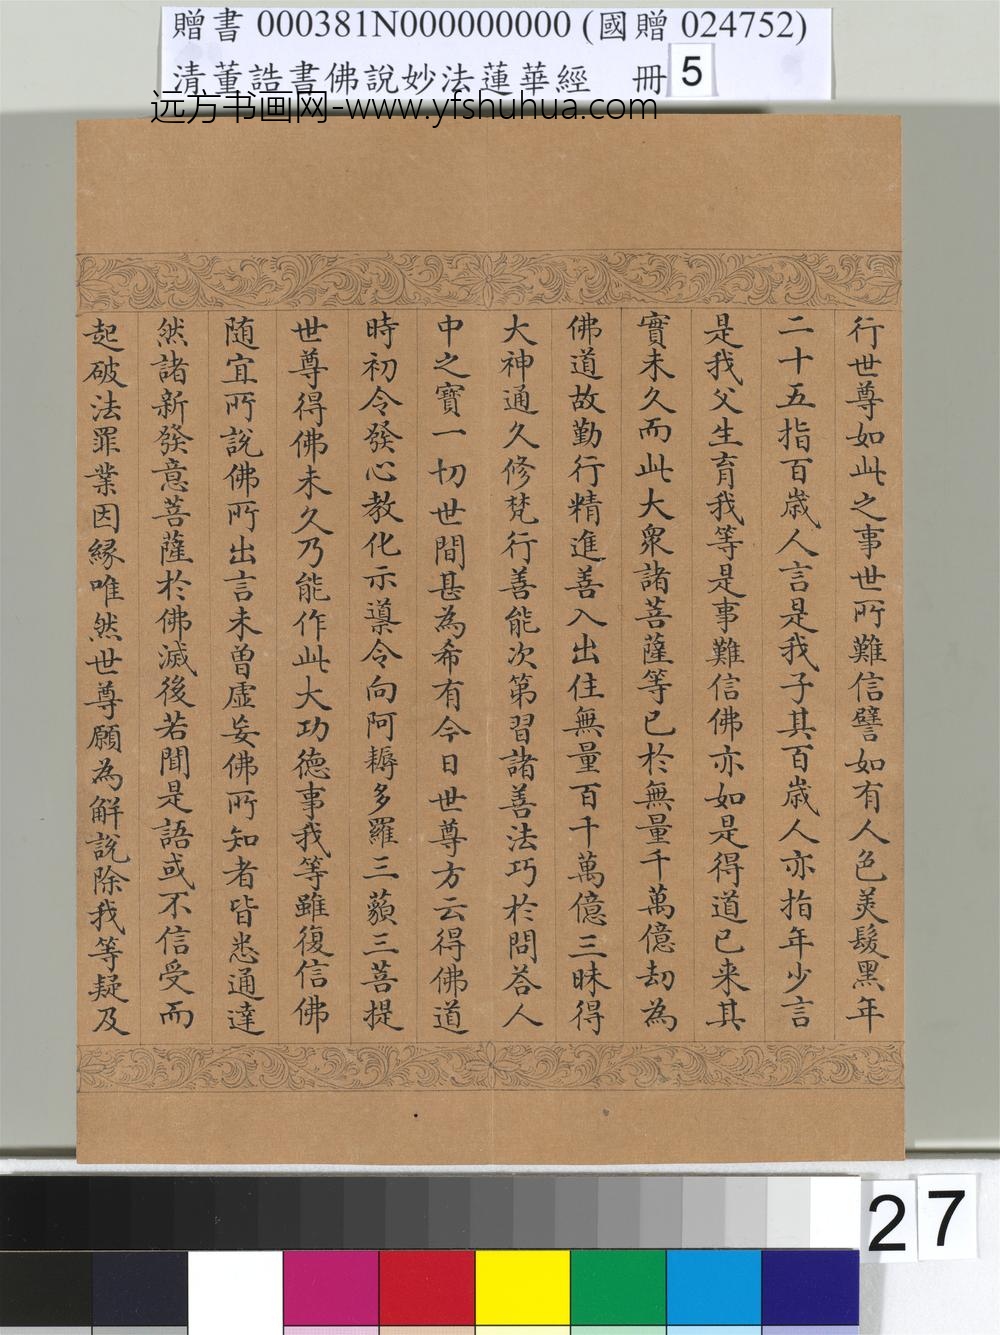 贈書 000381N000000000 (國贈 024752)
清董誥書佛說妙法蓮華經 冊 5
远方书画网-www.yfshuhua.com
行世尊如此之事世所難信譬如有人色美髮黑年
二十五指百歲人言是我子其百歲人亦指年少言
是我父生育我等是事難信佛亦如是得道已来其
實未久而此大衆諸菩薩等已於無量千萬億劫為
佛道故勤行精進善入出住無量百千萬億三昧得
大神通久修梵行善能次第習諸善法巧於問答人
中之寶一切世間甚為希有今日世尊方云得佛道
時初令發心教化示導令向阿耨多羅三藐三菩提
世尊得佛未久乃能作此大功德事我等雖復信佛
随宜所說佛所出言未曽虛妄佛所知者皆悉通達
然諸新發意菩薩於佛滅後若聞是語或不信受而
起破法罪業因緣唯然世尊願為解說除我等疑及
27